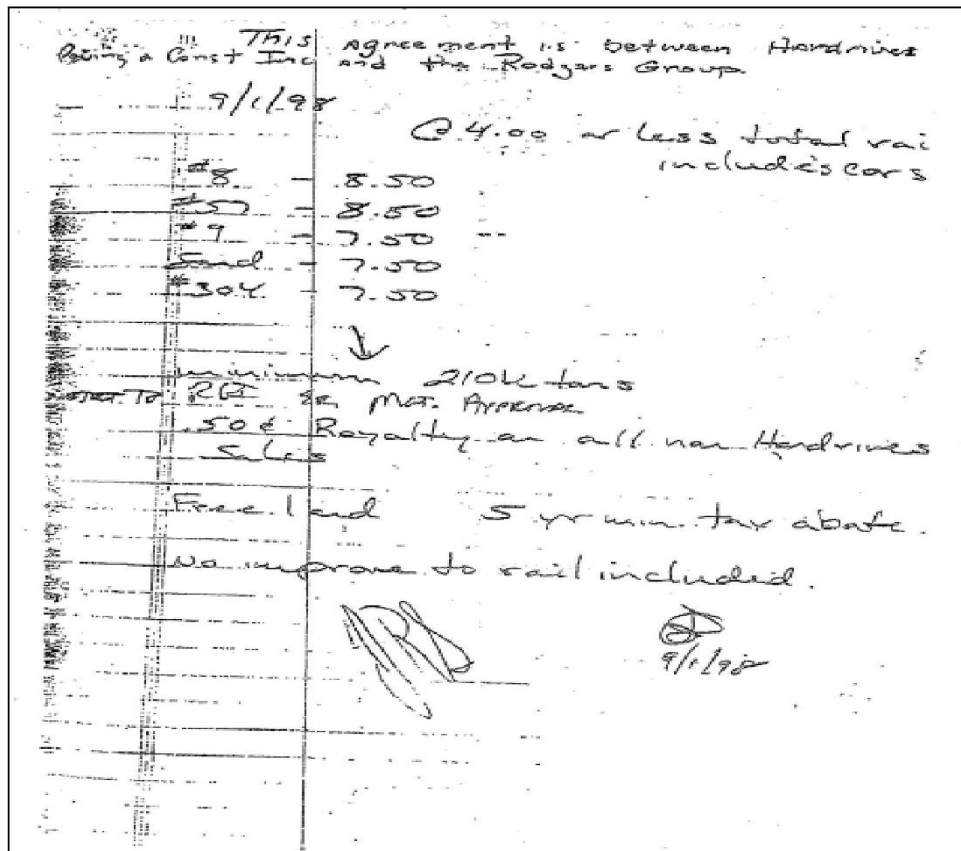 This agreement is between Hardrives
Paving & Const Inc and the Rodgers Group.
9/1/98
@ 4.00 or less total rai
includes cars
#8 - 8.50
#57 - 8.50
#9 - 7.50 --
Sand - 7.50
#304 - 7.50
minimum 210k tons
RGI Mat. Approval
.50¢ Royalty on all non Hardrives
Sales
Free land 5 yr min. tax abate.
No improve to rail included.
9/1/98